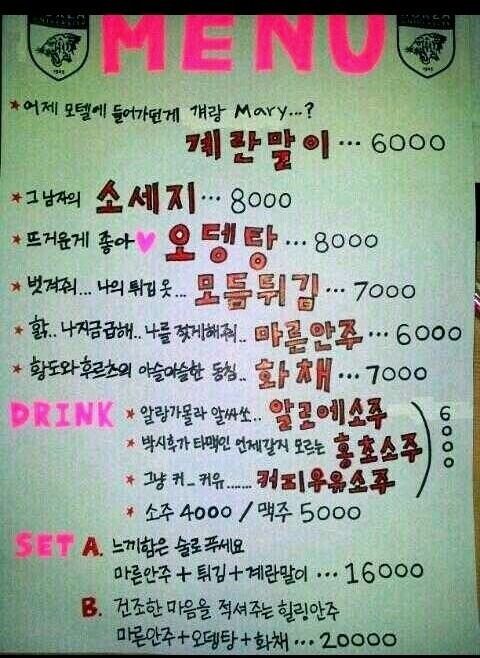 MENU
★ 어제 모텔에 들어가던게 걔랑 Mary...?
계란말이 ... 6000
★ 그 남자의 소세지 ... 8000
★ 뜨거운게 좋아♥ 오뎅탕 ... 8000
★ 벗겨줘... 나의 튀김옷... 모듬튀김 ... 7000
★ 핡.. 나지금급해.. 나를 젖게해줘.. 마른안주 ... 6000
★ 황도와후르츠의 아슬아슬한 동침.. 화채 ... 7000
DRINK ★ 알랑가몰라 알싸쏘.. 알로에소주
★ 박시후가 타맥인 언제갈지 모르는 홍초소주
★ 그냥 커_커유....... 커피우유소주
6000
★ 소주 4000 / 맥주 5000
SET A. 느끼함은 술로푸세요
마른안주 + 튀김 + 계란말이 ... 16000
B. 건조한 마음을 적셔주는 힐링안주
마른안주 + 오뎅탕 + 화채 ... 20000